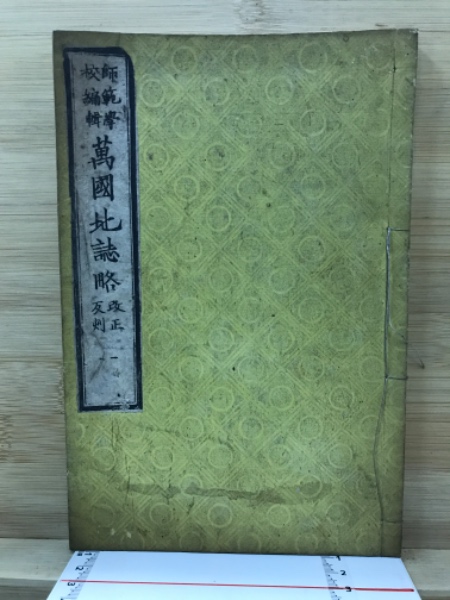 師範學
校編輯
萬國地誌略
改正
反刻
一